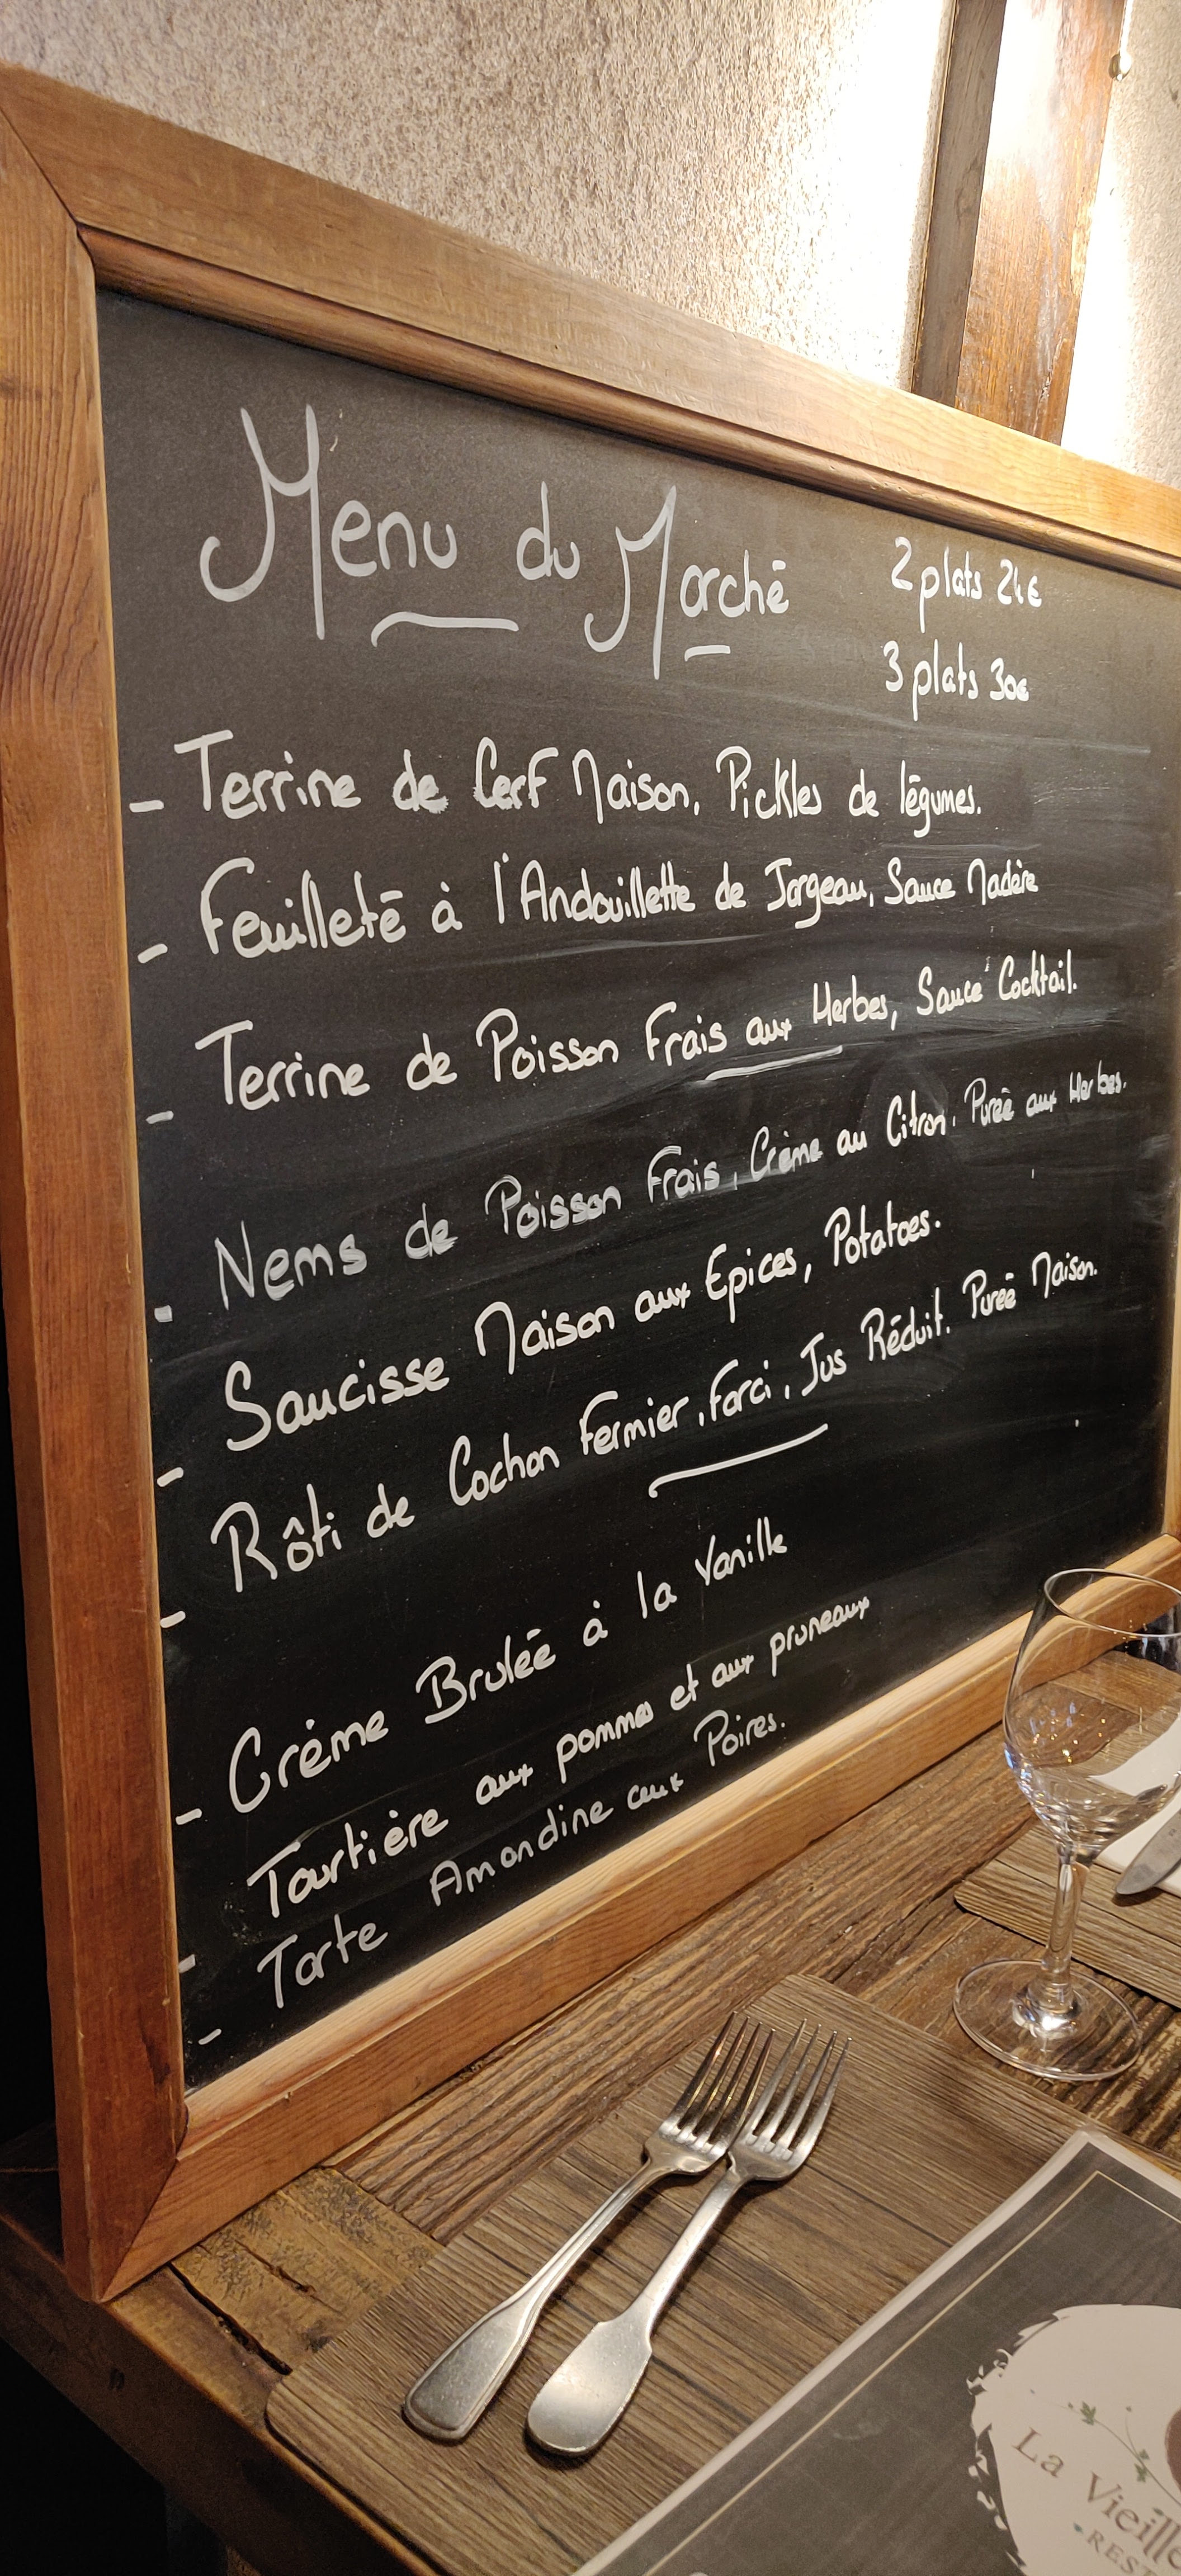 Menu du Marché
2 plats 24€
3 plats 30€
- Terrine de Cerf Maison, Pickles de légumes.
- Feuilleté à l'Andouillette de Jargeau, Sauce Madère
- Terrine de Poisson Frais aux Herbes, Sauce Cocktail.
- Nems de Poisson Frais, Crème au Citron. Purée aux Herbes.
- Saucisse Maison aux Epices, Potatoes.
- Rôti de Cochon Fermier, Farci, Jus Réduit. Purée Maison.
- Crème Brulée à la Vanille
- Tourtière aux pommes et aux pruneaux
- Tarte Amandine aux Poires.
La Vieille